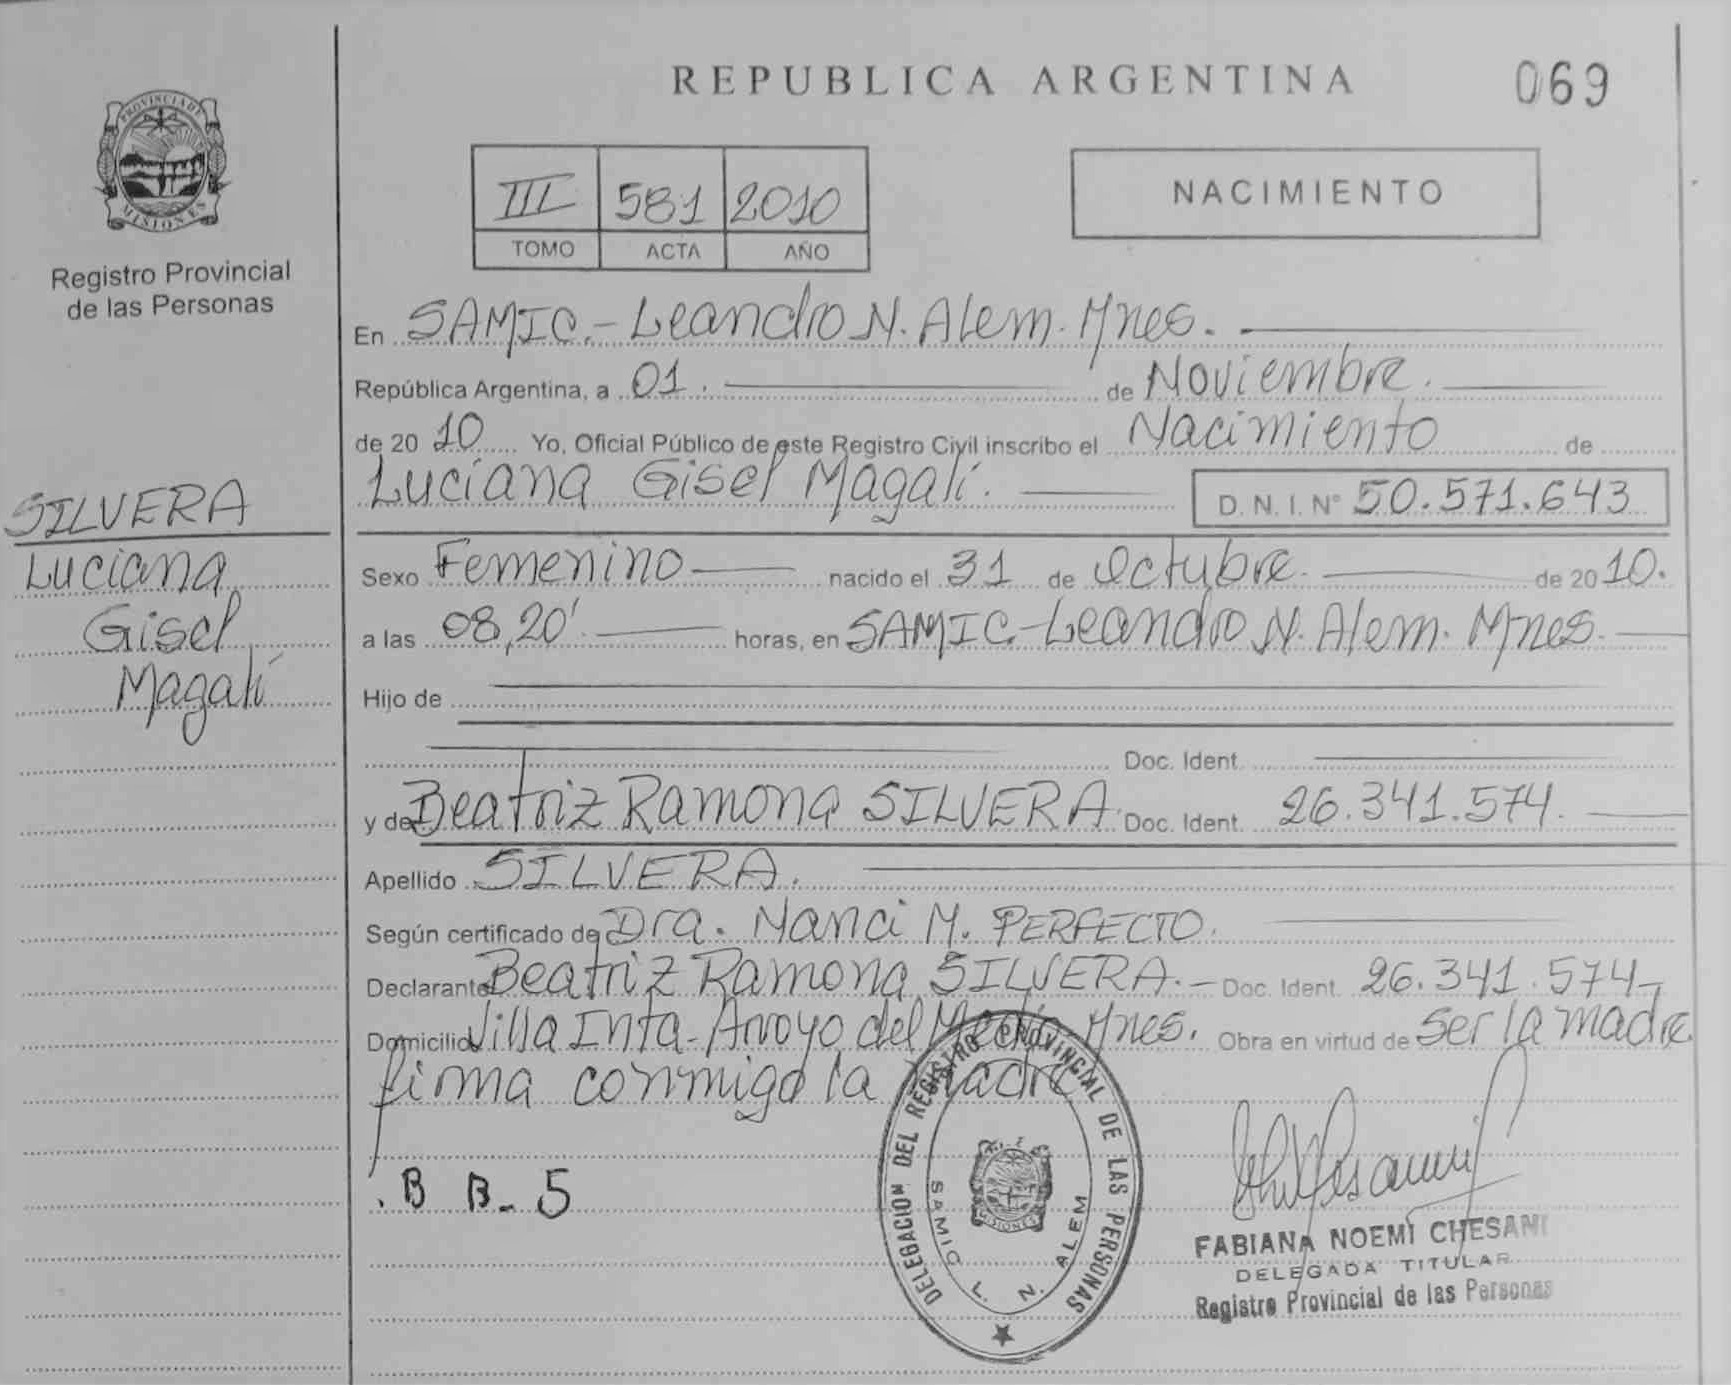 REPUBLICA ARGENTINA
069
PROVINCIA DE
MISIONES
Registro Provincial
de las Personas
III 581 2010
TOMO ACTA AÑO
NACIMIENTO
En SAMIC.- Leandro N. Alem. Mnes.
República Argentina, a 01. de Noviembre.
de 20 10 Yo, Oficial Público de este Registro Civil inscribo el Nacimiento de
Luciana Gisel Magalí. D. N. I. Nº 50.571.643
SILVERA
Luciana
Gisel
Magalí
Sexo Femenino nacido el 31 de Octubre. de 20 10.
a las 08,20' horas, en SAMIC-Leandro N. Alem. Mnes.
Hijo de
Doc. Ident.
y de Beatriz Ramona SILVERA. Doc. Ident. 26.341.574.
Apellido SILVERA.
Según certificado de Dra. Nanci M. PERFECTO.
Declarante Beatriz Ramona SILVERA.- Doc. Ident. 26.341.574-
Domicilio Villa Inta-Arroyo del Medio Mnes. Obra en virtud de ser la madre
firma conmigo la madre
. B B- 5
DELEGACION DEL REGISTRO PROVINCIAL DE LAS PERSONAS
SAMIC L. N. ALEM
MISIONES
FABIANA NOEMI CHESANI
DELEGADA TITULAR
Registro Provincial de las Personas